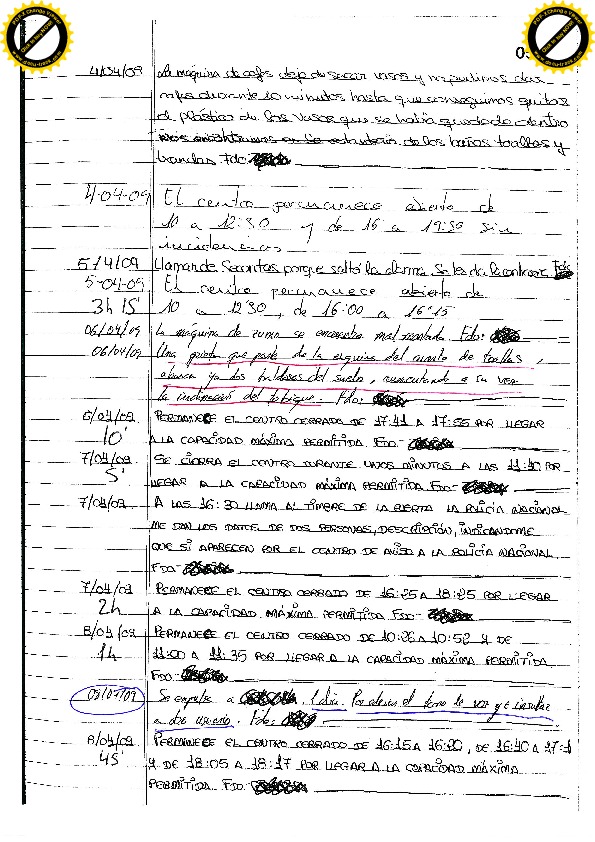 4/04/09 La máquina de cafe deja de sacar vasos y repartimos los
cafes durante 10 minutos hasta que conseguimos quitar
el plástico de los vasos que se había quedado dentro
de los baños toallas y
bandas Fdo:
4-04-09 El centro permanece abierto de
10 a 12:30 y de 16 a 19:30 sin
incidencias
5/4/09 Llaman de Securitas porque saltó la alarma. Se les da la contraseña Fdo
5-04-09 El centro permanece abierto de
3h 15' 10 a 12'30, de 16:00 a 16'15
06/04/09 La máquina de zumo se encuentra mal montada. Fdo:
06/04/09 Una grieta que parte de la esquina del cuarto de toallas,
abarca ya dos baldosas del suelo, aumentando a su vez
la inclinación del tabique. Fdo:
6/04/09 PERMANECE EL CENTRO CERRADO DE 17:41 A 17:55 POR LLEGAR
10' A LA CAPACIDAD MÁXIMA PERMITIDA FDO:
7/04/09 SE CIERRA EL CENTRO DURANTE UNOS MINUTOS A LAS 11:40 POR
5' LLEGAR A LA CAPACIDAD MÁXIMA PERMITIDA FDO:
7/04/09 A LAS 16:30 LLAMA AL TIMBRE DE LA PUERTA LA POLICÍA NACIONAL
ME DAN LOS DATOS DE DOS PERSONAS, DESCRIPCIÓN, INDICANDOME
QUE SI APARECEN POR EL CENTRO DE AVISO A LA POLICÍA NACIONAL.
FDO:
7/04/09 PERMANECE EL CENTRO CERRADO DE 16:25 A 18:25 POR LLEGAR
2h A LA CAPACIDAD MÁXIMA PERMITIDA FDO:
8/04/09 PERMANECE EL CENTRO CERRADO DE 10:26 A 10:52 Y DE
1h 11:00 A 11:35 POR LLEGAR A LA CAPACIDAD MÁXIMA PERMITIDA
FDO:
Se expulsa a 1 día. Por elevar el tono de voz y insultar
a otro usuario. Fdo:
8/04/09 PERMANECE EL CENTRO CERRADO DE 16:15 A 16:20, DE 16:40 A
45' Y DE 18:05 A 18:17 POR LLEGAR A LA CAPACIDAD MÁXIMA
PERMITIDA FDO: